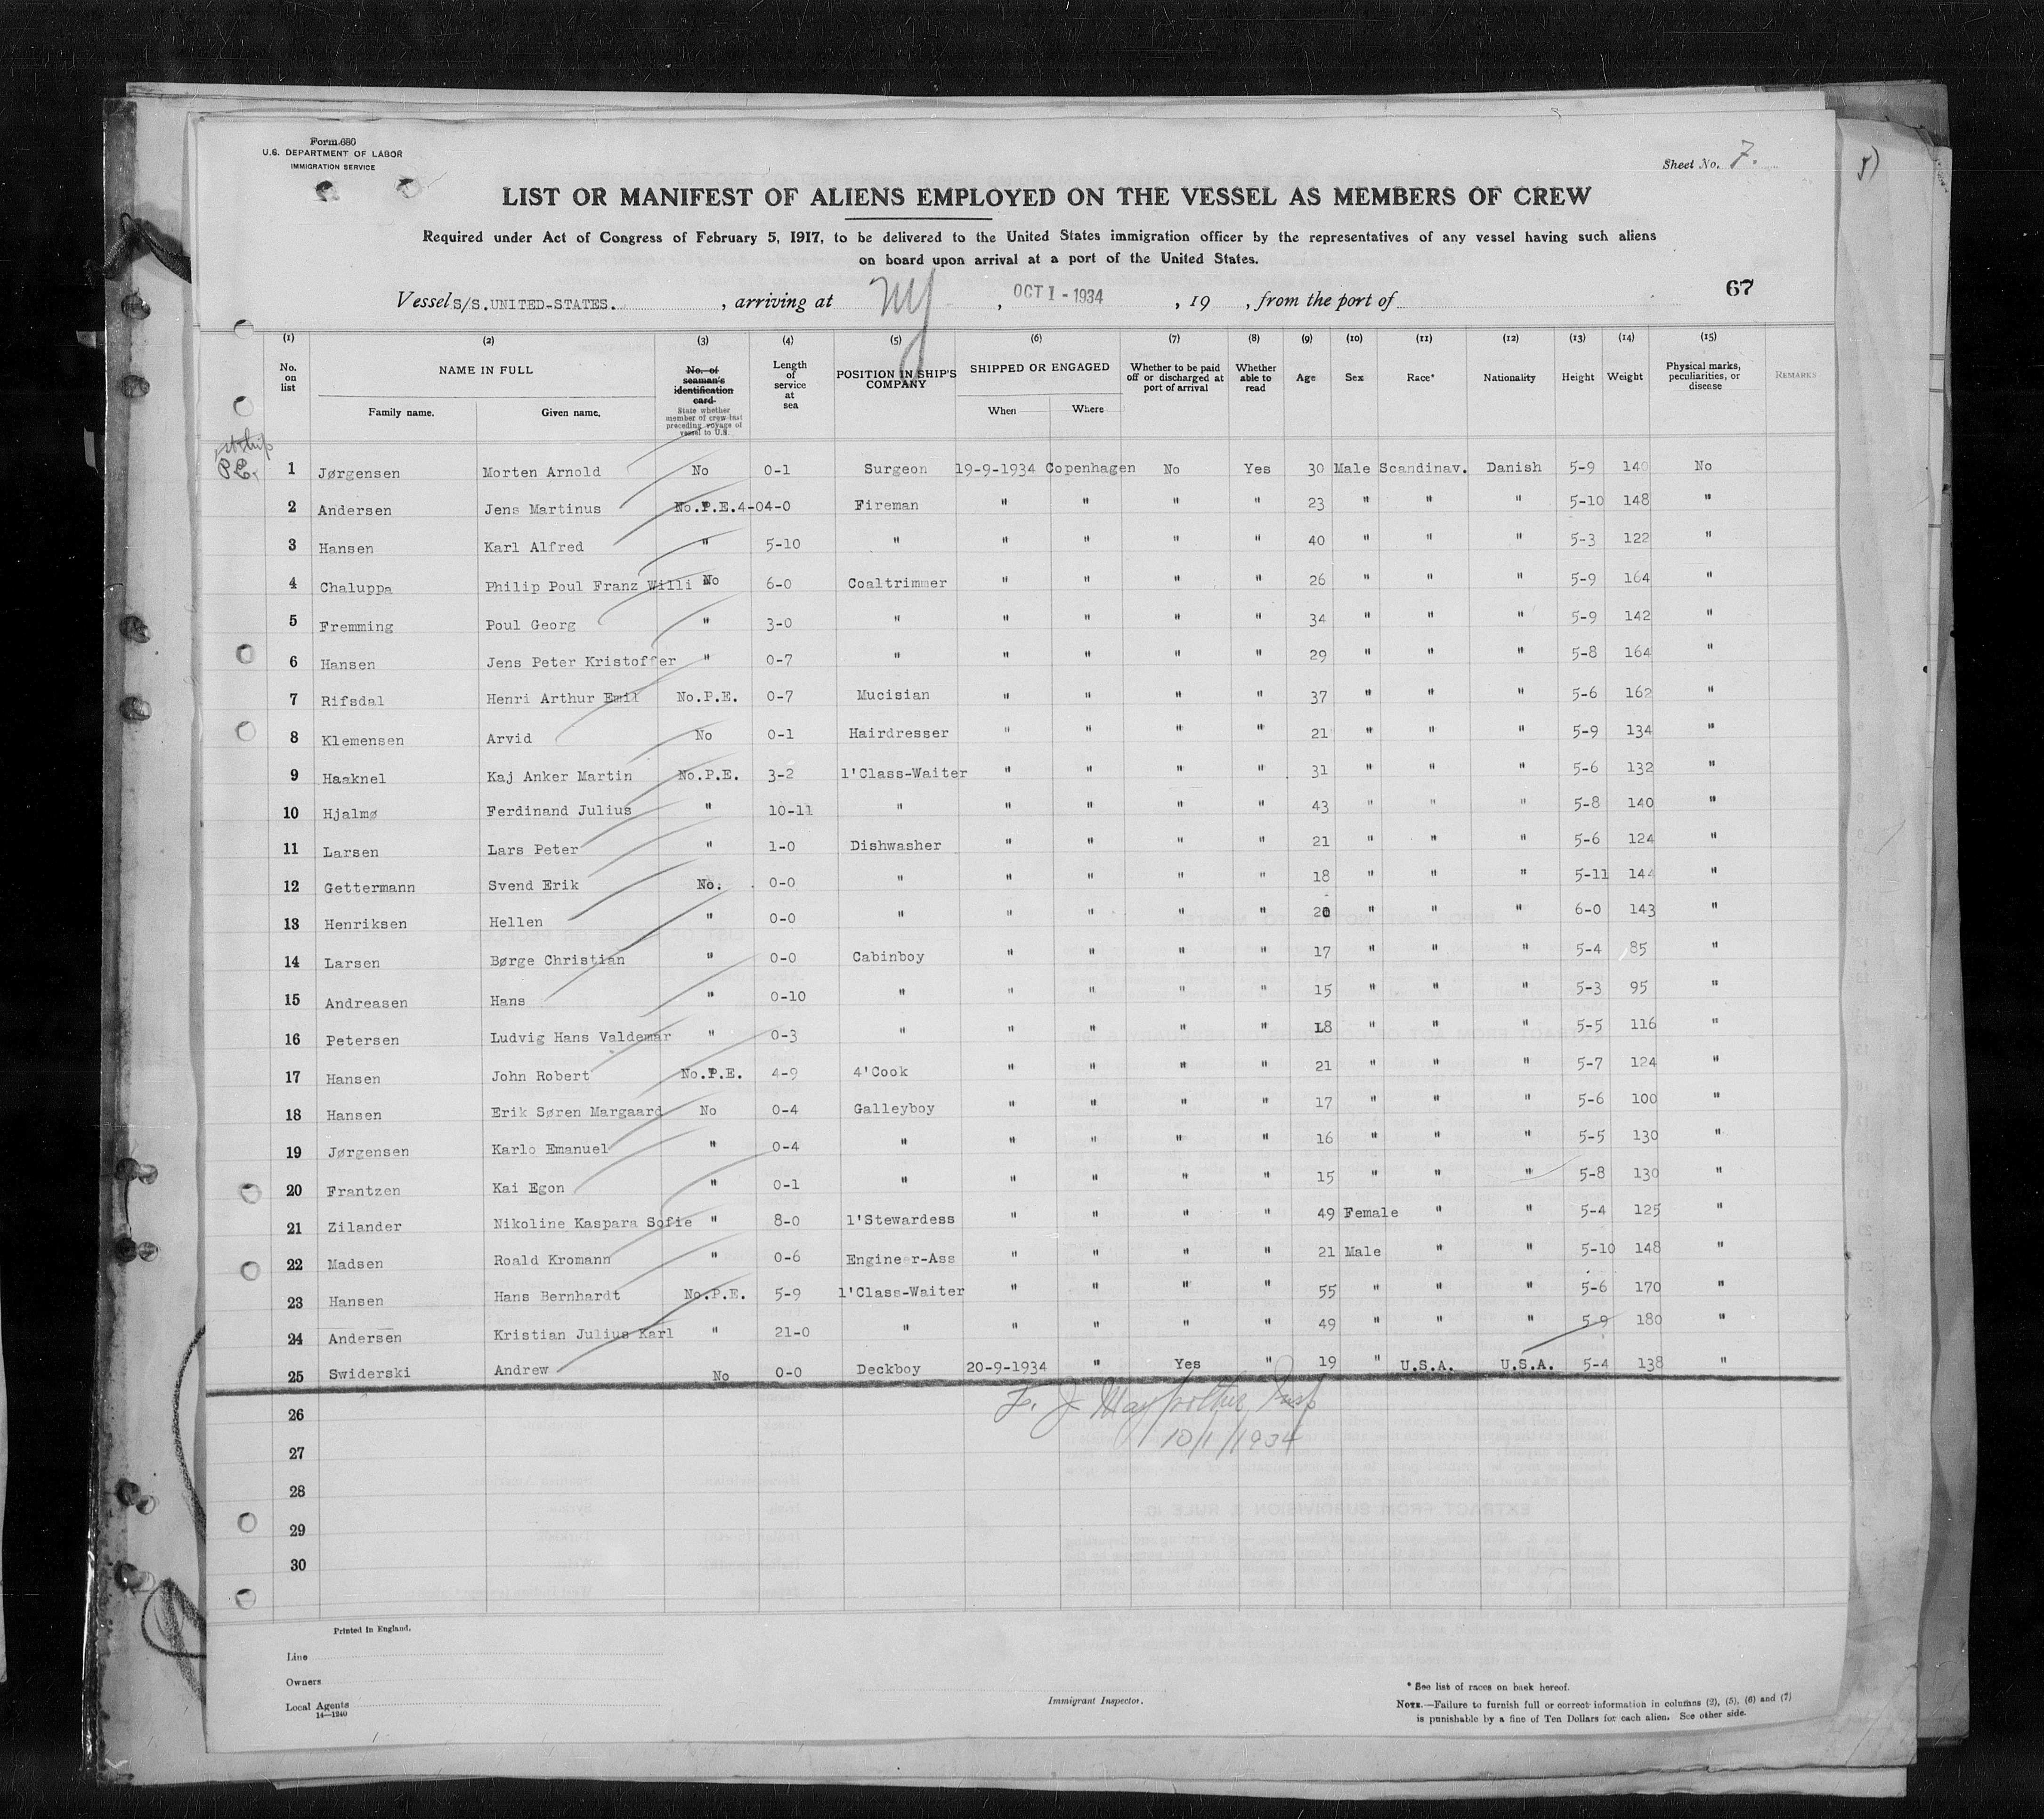 Form 680
U.S. DEPARTMENT OF LABOR
IMMIGRATION SERVICE
Sheet No. 7.
5)
LIST OR MANIFEST OF ALIENS EMPLOYED ON THE VESSEL AS MEMBERS OF CREW
Required under Act of Congress of February 5, 1917, to be delivered to the United States immigration officer by the representatives of any vessel having such aliens
on board upon arrival at a port of the United States.
Vessel S/S. UNITED-STATES. , arriving at NY , OCT 1 - 1934 , 19 , from the port of 67
(1) (2) (3) (4) (5) (6) (7) (8) (9) (10) (11) (12) (13) (14) (15)
No. on list NAME IN FULL Family name. Given name. No. of seaman's identification card State whether member of crew last preceding voyage of vessel to U.S. Length of service at sea POSITION IN SHIP'S COMPANY SHIPPED OR ENGAGED When Where Whether to be paid off or discharged at port of arrival Whether able to read Age Sex Race* Nationality Height Weight Physical marks, peculiarities, or disease REMARKS
P.E.
1 Jørgensen Morten Arnold No 0-1 Surgeon 19-9-1934 Copenhagen No Yes 30 Male Scandinav. Danish 5-9 140 No
2 Andersen Jens Martinus No.P.E.4-04-0 Fireman " " " " 23 " " " 5-10 148 "
3 Hansen Karl Alfred " 5-10 " " " " " 40 " " " 5-3 122 "
4 Chaluppa Philip Poul Franz Willi No 6-0 Coaltrimmer " " " " 26 " " " 5-9 164 "
5 Fremming Poul Georg " 3-0 " " " " " 34 " " " 5-9 142 "
6 Hansen Jens Peter Kristoffer " 0-7 " " " " " 29 " " " 5-8 164 "
7 Rifsdal Henri Arthur Emil No.P.E. 0-7 Mucisian " " " " 37 " " " 5-6 162 "
8 Klemensen Arvid No 0-1 Hairdresser " " " " 21 " " " 5-9 134 "
9 Haaknel Kaj Anker Martin No.P.E. 3-2 1'Class-Waiter " " " " 31 " " " 5-6 132 "
10 Hjalmø Ferdinand Julius " 10-11 " " " " " 43 " " " 5-8 140 "
11 Larsen Lars Peter " 1-0 Dishwasher " " " " 21 " " " 5-6 124 "
12 Gettermann Svend Erik No. 0-0 " " " " " 18 " " " 5-11 144 "
13 Henriksen Hellen " 0-0 " " " " " 20 " " " 6-0 143 "
14 Larsen Børge Christian " 0-0 Cabinboy " " " " 17 " " " 5-4 85 "
15 Andreasen Hans " 0-10 " " " " " 15 " " " 5-3 95 "
16 Petersen Ludvig Hans Valdemar " 0-3 " " " " " 18 " " " 5-5 116 "
17 Hansen John Robert No.P.E. 4-9 4'Cook " " " " 21 " " " 5-7 124 "
18 Hansen Erik Søren Margaard No 0-4 Galleyboy " " " " 17 " " " 5-6 100 "
19 Jørgensen Karlo Emanuel " 0-4 " " " " " 16 " " " 5-5 130 "
20 Frantzen Kai Egon " 0-1 " " " " " 15 " " " 5-8 130 "
21 Zilander Nikoline Kaspara Sofie " 8-0 1'Stewardess " " " " 49 Female " " 5-4 125 "
22 Madsen Roald Kromann " 0-6 Engineer-Ass " " " " 21 Male " " 5-10 148 "
23 Hansen Hans Bernhardt No.P.E. 5-9 1'Class-Waiter " " " " 55 " " " 5-6 170 "
24 Andersen Kristian Julius Karl " 21-0 " " " " " 49 " " " 5-9 180 "
25 Swiderski Andrew No 0-0 Deckboy 20-9-1934 " Yes " 19 " U.S.A. U.S.A. 5-4 138 "
26
10/1/1934
27
28
29
30
Printed in England.
Line
Owners
Local Agents
14—1240
Immigrant Inspector.
* See list of races on back hereof.
NOTE.—Failure to furnish full or correct information in columns (2), (5), (6) and (7)
is punishable by a fine of Ten Dollars for each alien. See other side.